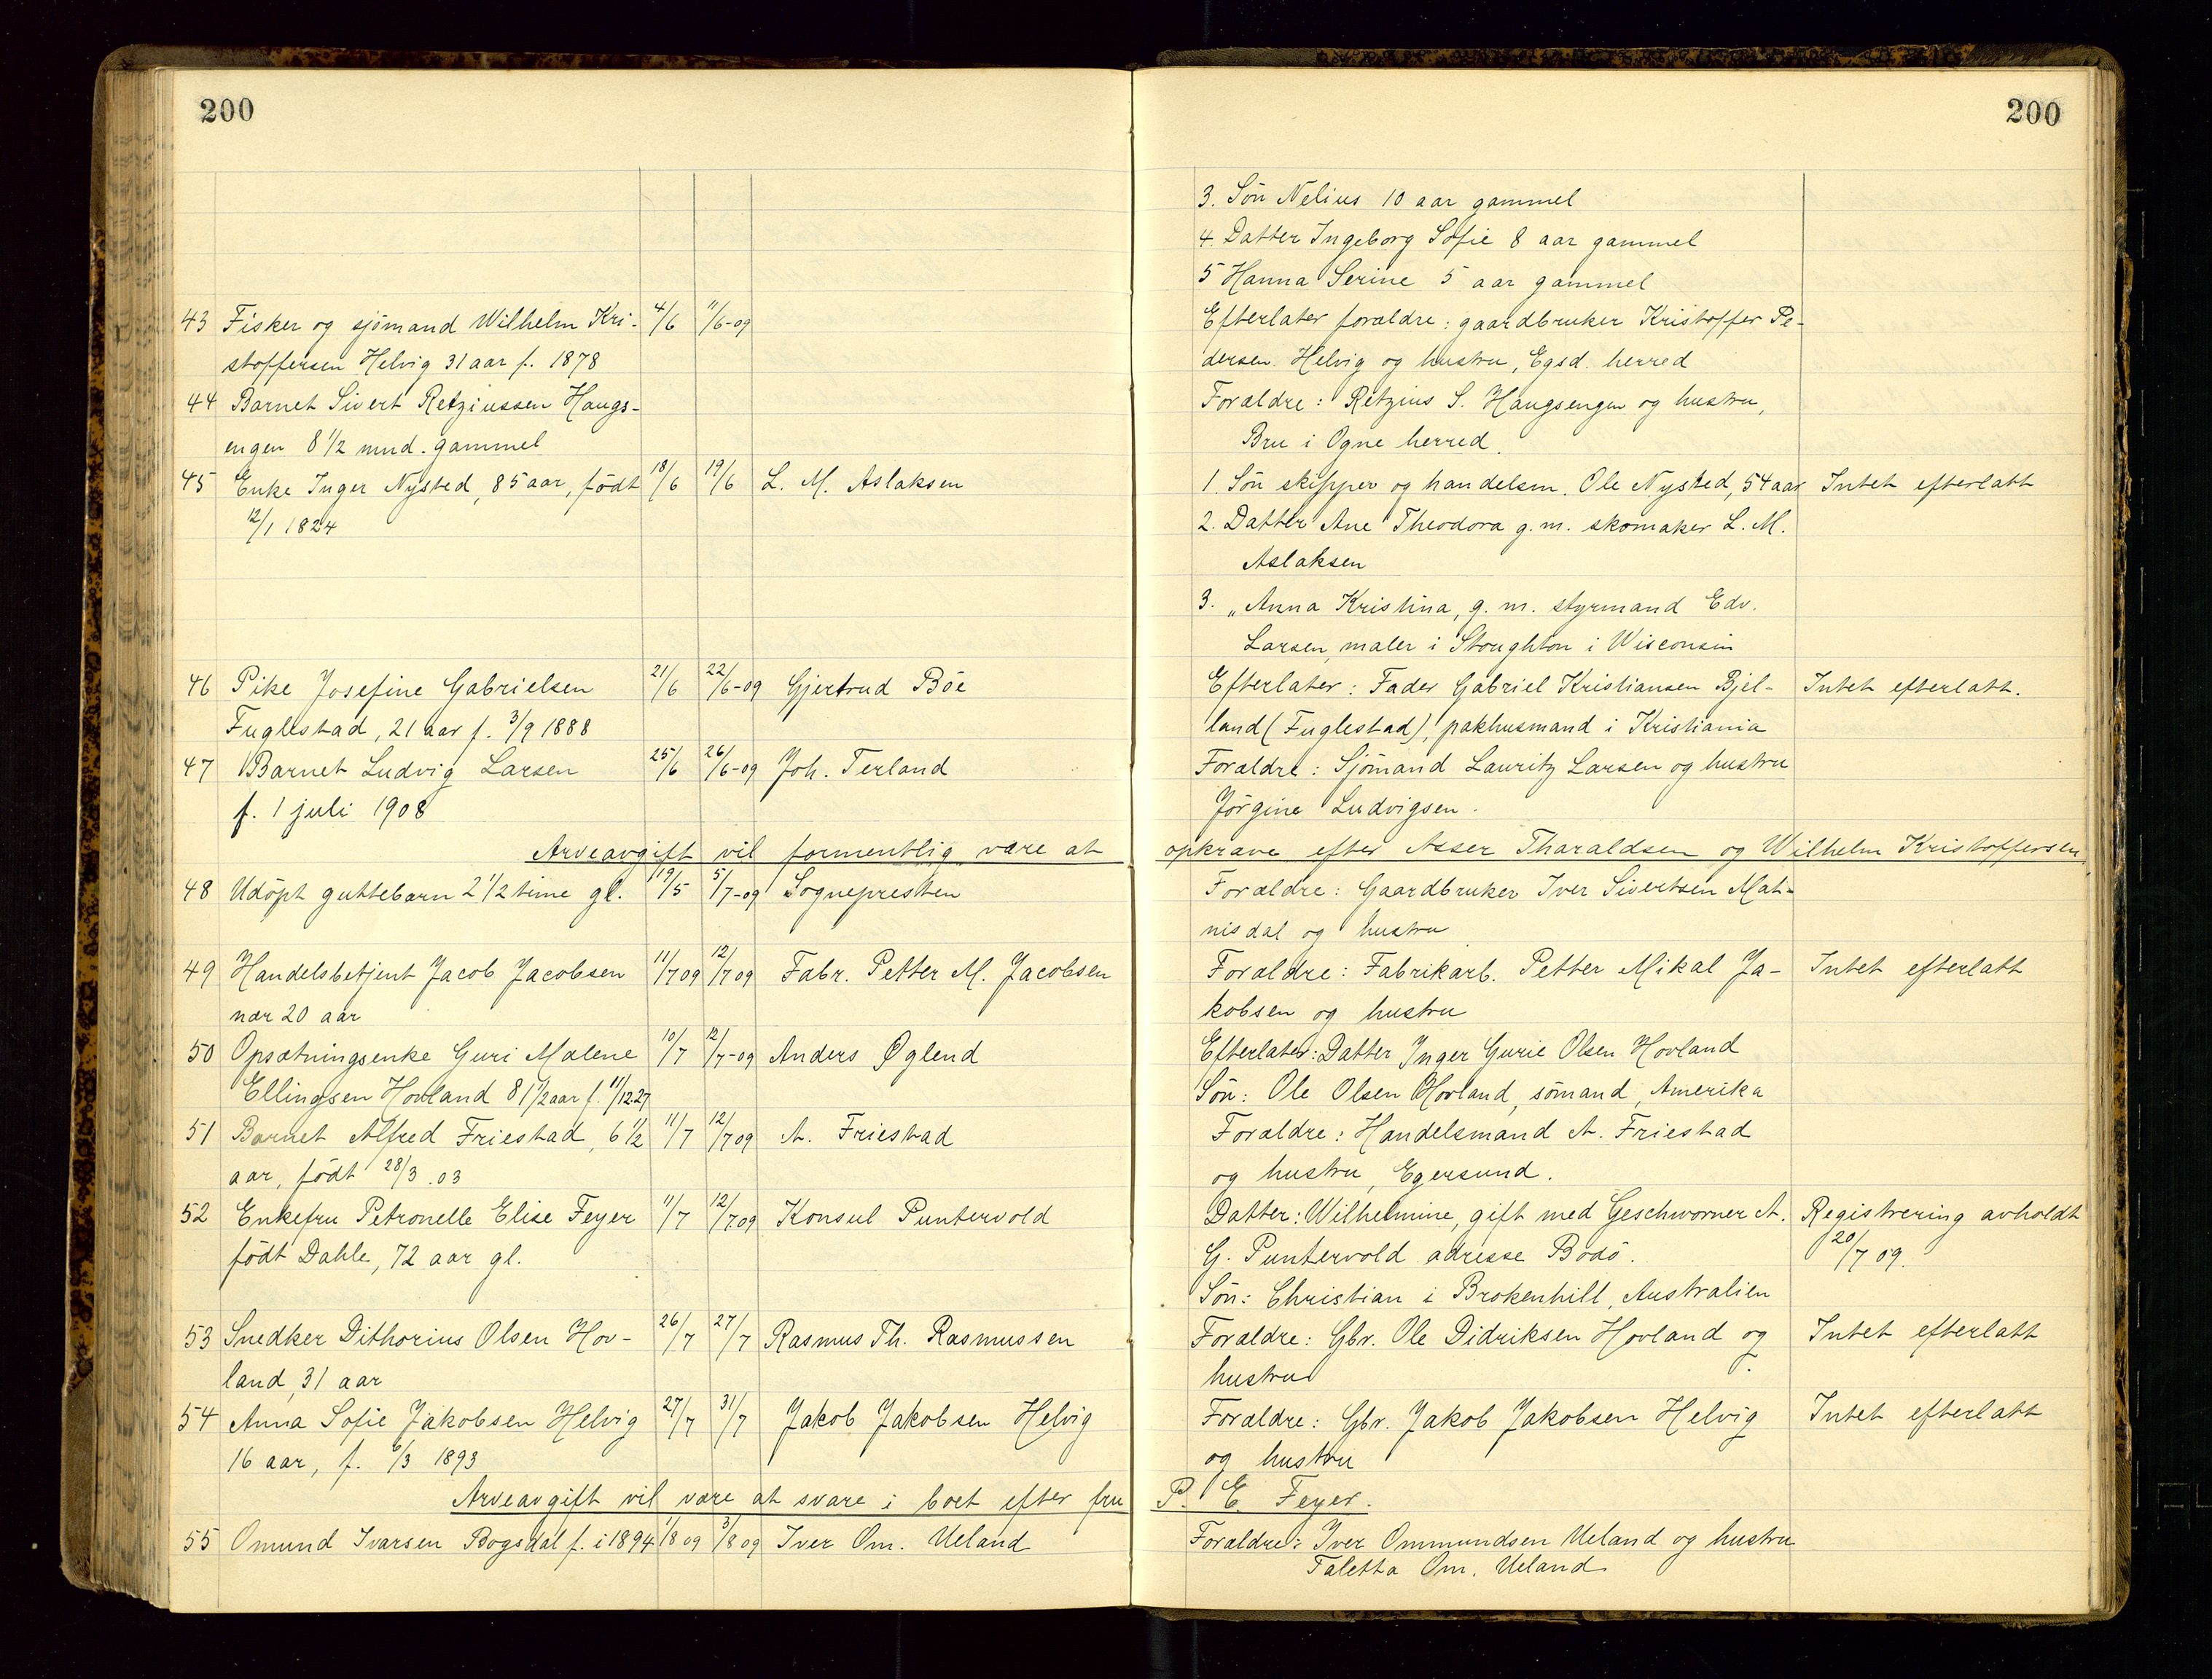 200
43 Fisker og sjömand Wilhelm Kri- 4/6 11/6-09
stoffersen Helvig 31 aar f. 1878
44 Barnet Sivert Retziussen Haugs-
engen 8 1/2 mnd. gammel
45 Enke Inger Nysted, 85 aar, födt 18/6 19/6 L. M. Aslaksen
12/1 1824
46 Pike Josefine Gabrielsen 21/6 22/6-09 Gjertrud Böe
Fuglestad, 21 aar f. 3/9 1888
47 Barnet Ludvig Larsen 25/6 26/6-09 Joh. Terland
f. 1 juli 1908
Arveavgift vil formentlig være at
48 Udöpt guttebarn 2 1/2 time gl. 19/5 5/7-09 Sognepresten
49 Handelsbetjent Jacob Jacobsen 11/7 09 12/7 09 Fabr. Petter M. Jacobsen
nær 20 aar
50 Opsætningsenke Guri Malene 10/7 12/7-09 Anders Øglend
Ellingsen Hovland 81 1/2 aar f. 11/12.27
51 Barnet Alfred Friestad, 6 1/2 11/7 12/7 09 A. Friestad
aar, födt 28/3.03
52 Enkefru Petronelle Elise Feyer 11/7 12/7.09 Konsul Puntervold
födt Dahle, 72 aar gl.
53 Snedker Dithorius Olsen Hov- 26/7 27/7 Rasmus Th. Rasmussen
land, 31 aar
54 Anna Sofie Jakobsen Helvig 27/7 31/7 Jakob Jakobsen Helvig
16 aar, f. 6/3 1893
Arveavgift vil være at svare i boet efter fru
55 Omund Ivarsen Bogsdal f. i 1894 1/8 09 3/8 09 Iver Om. Ueland
200
3. Sön Nelius 10 aar gammel
4. Datter Ingeborg Sofie 8 aar gammel
5 Hanna Serine 5 aar gammel
Efterlater forældre: gaardbruker Kristoffer Pe-
dersen Helvig og hustru, Egsd. herred
Forældre: Retzius S. Haugsengen og hustru,
Bru i Ogne herred.
1. Sön skipper og handelsm. Ole Nysted, 54 aar Intet efterlatt
2. Datter Ane Theodora g.m. skomaker L. M.
Aslaksen
3. „ Anna Kristina, g. m. styrmand Edv.
Larsen, maler i Stoughton i Wisconsin
Efterlater: Fader Gabriel Kristiansen Bjel- Intet efterlatt.
land (Fuglestad), pakhusmand i Kristiania
Forældre: Sjömand Lauritz Larsen og hustru
Jörgine Ludvigsen.
opkræve efter Asser Tharaldsen og Wilhelm Kristoffersen.
Forældre: Gaardbruker Iver Sivertsen Mat-
nisdal og hustru
Forældre: Fabrikarb. Petter Mikal Ja- Intet efterlatt
kobsen og hustru
Efterlater: Datter Inger Gurie Olsen Hovland
Sön: Ole Olsen Hovland, sömand, Amerika
Forældre: Handelsmand A. Friestad
og hustru, Egersund.
Datter: Wilhelmine, gift med Geschworner A. Registrering avholdt
G. Puntervold adresse Bodö. 20/7 09.
Sön: Christian i Brokenhill, Australien
Forældre: Gbr. Ole Didriksen Hovland og Intet efterlatt
hustru.
Forældre: Gbr. Jakob Jakobsen Helvig Intet efterlatt
og hustru
P. E. Feyer.
Forældre: Iver Ommundsen Ueland og hustru
Taletta Om. Ueland.